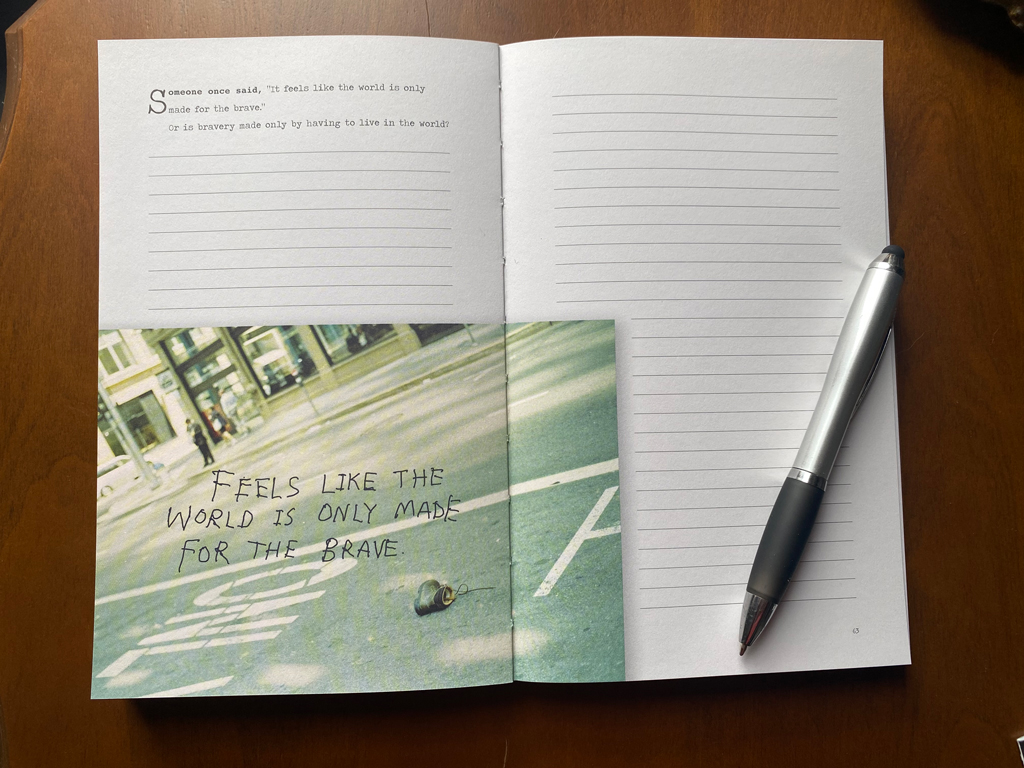 Someone once said, "It feels like the world is only
made for the brave."
Or is bravery made only by having to live in the world?
FEELS LIKE THE
WORLD IS ONLY MADE
FOR THE BRAVE.
63